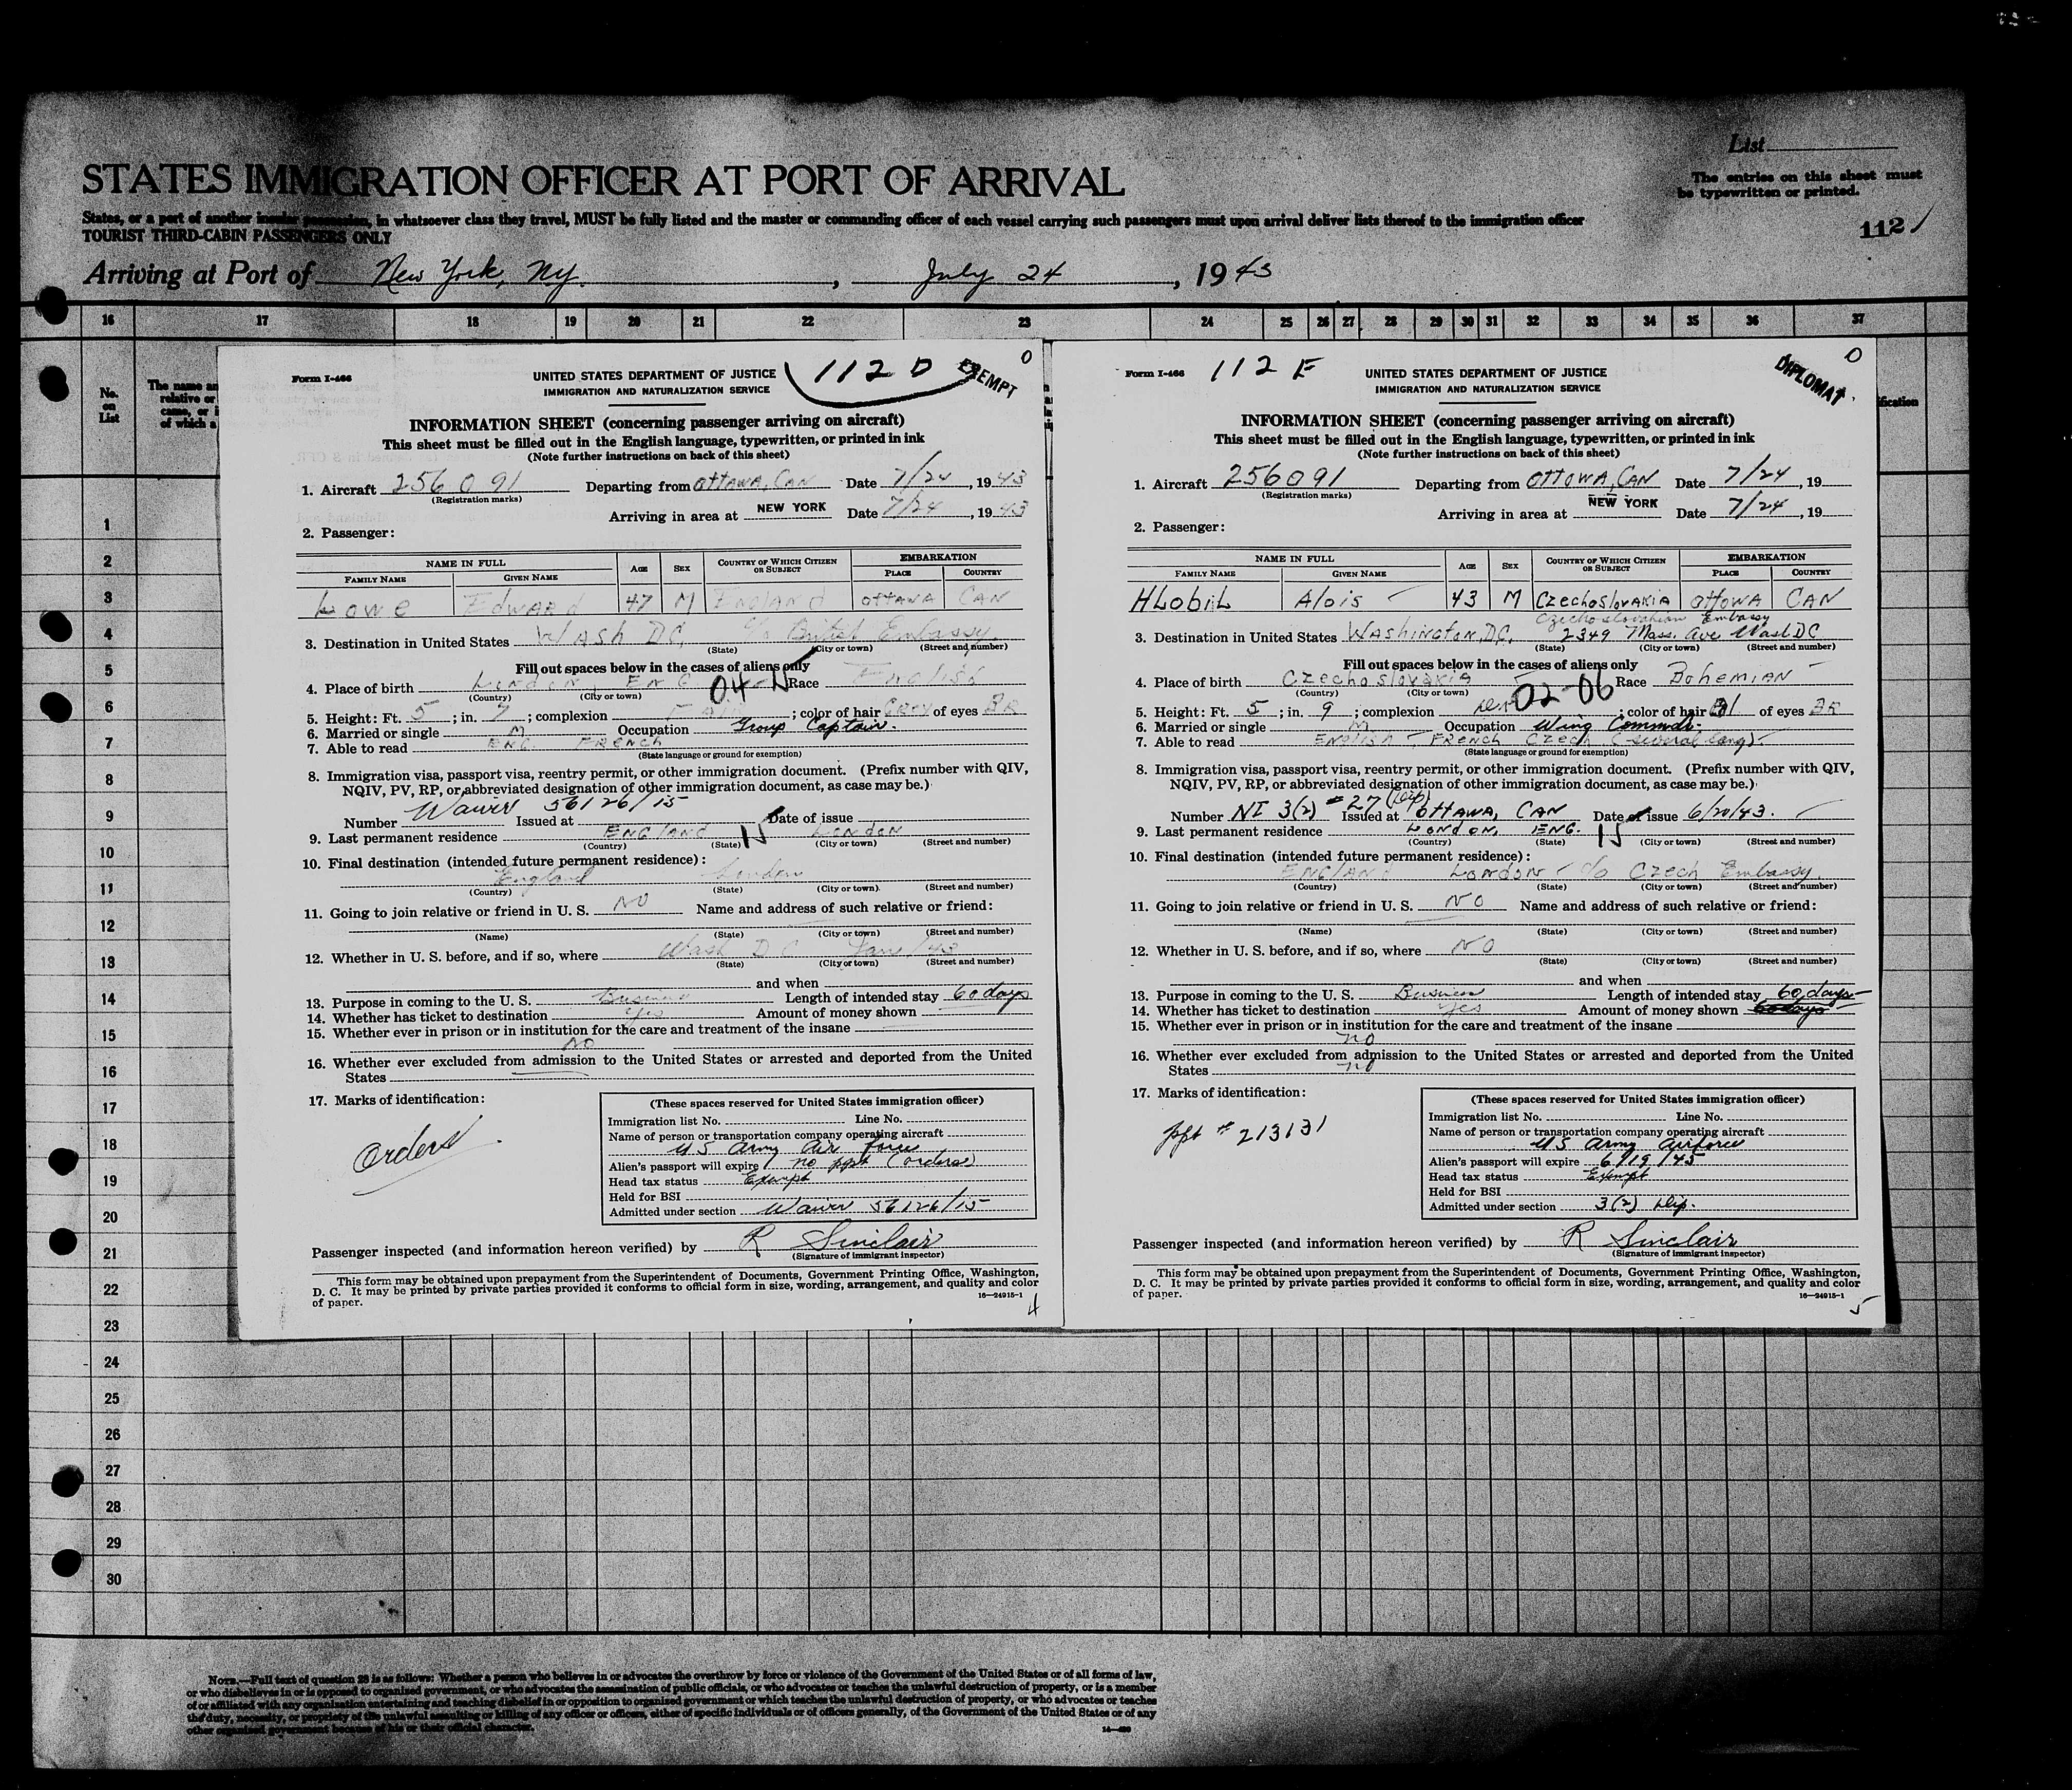 List
STATES IMMIGRATION OFFICER AT PORT OF ARRIVAL
The entries on this sheet must
be typewritten or printed.
States, or a port of another insular possession, in whatsoever class they travel, MUST be fully listed and the master or commanding officer of each vessel carrying such passengers must upon arrival deliver lists thereof to the immigration officer
TOURIST THIRD-CABIN PASSENGERS ONLY
112
Arriving at Port of New York, NY. , July 24, 1943
16 17 18 19 20 21 22 23 24 25 26 27 28 29 30 31 32 33 34 35 36 37
No.
on
List
The name an
relative or
came, or i
of which a
1
2
3
4
5
6
7
8
9
10
11
12
13
14
15
16
17
18
19
20
21
22
23
24
25
26
27
28
29
30
Form I-466
112 D
EXEMPT
0
UNITED STATES DEPARTMENT OF JUSTICE
IMMIGRATION AND NATURALIZATION SERVICE
INFORMATION SHEET (concerning passenger arriving on aircraft)
This sheet must be filled out in the English language, typewritten, or printed in ink
(Note further instructions on back of this sheet)
1. Aircraft 256091 Departing from Ottawa, Can Date 7/24, 1943
(Registration marks)
Arriving in area at NEW YORK Date 7/24, 1943
2. Passenger:
NAME IN FULL AGE SEX COUNTRY OF WHICH CITIZEN OR SUBJECT EMBARKATION
FAMILY NAME GIVEN NAME PLACE COUNTRY
Lowe Edward 47 M England Ottawa Can
3. Destination in United States Wash DC, c/o British Embassy
(State) (City or town) (Street and number)
Fill out spaces below in the cases of aliens only
4. Place of birth London, Eng 04 Race English
(Country) (City or town)
5. Height: Ft. 5; in. 7; complexion Fair; color of hair Grey of eyes Br
6. Married or single M Occupation Group Captain.
7. Able to read Eng French
(State language or ground for exemption)
8. Immigration visa, passport visa, reentry permit, or other immigration document. (Prefix number with QIV,
NQIV, PV, RP, or abbreviated designation of other immigration document, as case may be.)
Number Waiver 56126/15 Issued at Date of issue
9. Last permanent residence England 15 London
(Country) (State) (City or town) (Street and number)
10. Final destination (intended future permanent residence):
England London
(Country) (State) (City or town) (Street and number)
11. Going to join relative or friend in U. S. No Name and address of such relative or friend:
(Name) (State) (City or town) (Street and number)
12. Whether in U. S. before, and if so, where Wash D C /43
(State) (City or town) (Street and number)
and when
13. Purpose in coming to the U. S. Business Length of intended stay 60 days
14. Whether has ticket to destination Yes Amount of money shown
15. Whether ever in prison or in institution for the care and treatment of the insane
No
16. Whether ever excluded from admission to the United States or arrested and deported from the United
States
17. Marks of identification:
Orders
(These spaces reserved for United States immigration officer)
Immigration list No. Line No.
Name of person or transportation company operating aircraft
US Army Air Force
Alien's passport will expire no ppt (orders)
Head tax status Exempt
Held for BSI
Admitted under section Waiver 56126/15
Passenger inspected (and information hereon verified) by R Sinclair
(Signature of immigrant inspector)
This form may be obtained upon prepayment from the Superintendent of Documents, Government Printing Office, Washington,
D. C. It may be printed by private parties provided it conforms to official form in size, wording, arrangement, and quality and color
of paper.
16—24915-1
4
Form I-466
112 E
DIPLOMAT
0
UNITED STATES DEPARTMENT OF JUSTICE
IMMIGRATION AND NATURALIZATION SERVICE
INFORMATION SHEET (concerning passenger arriving on aircraft)
This sheet must be filled out in the English language, typewritten, or printed in ink
(Note further instructions on back of this sheet)
1. Aircraft 256091 Departing from Ottowa, Can Date 7/24, 19
(Registration marks)
Arriving in area at NEW YORK Date 7/24, 19
2. Passenger:
NAME IN FULL AGE SEX COUNTRY OF WHICH CITIZEN OR SUBJECT EMBARKATION
FAMILY NAME GIVEN NAME PLACE COUNTRY
Hlobil Alois 43 M Czechoslovakia Ottowa CAN
Czechoslovakian Embassy
3. Destination in United States Washington, D.C. 2349 Mass. Ave Wash DC
(State) (City or town) (Street and number)
Fill out spaces below in the cases of aliens only
4. Place of birth Czechoslovakia Race Bohemian
(Country) (City or town)
02-06
5. Height: Ft. 5; in. 9; complexion; color of hair Bl of eyes Br
6. Married or single M Occupation Wing Commdr.
7. Able to read English - French Czech (several lang)
(State language or ground for exemption)
8. Immigration visa, passport visa, reentry permit, or other immigration document. (Prefix number with QIV,
NQIV, PV, RP, or abbreviated designation of other immigration document, as case may be.)
Number NI 3(2) #27 (Dip) Issued at Ottawa, Can Date of issue 6/20/43.
9. Last permanent residence London, Eng. 15
(Country) (State) (City or town) (Street and number)
10. Final destination (intended future permanent residence):
England London - c/o Czech Embassy
(Country) (State) (City or town) (Street and number)
11. Going to join relative or friend in U. S. No Name and address of such relative or friend:
(Name) (State) (City or town) (Street and number)
12. Whether in U. S. before, and if so, where No
(State) (City or town) (Street and number)
and when
13. Purpose in coming to the U. S. Business Length of intended stay 60 days
14. Whether has ticket to destination Yes Amount of money shown 60 days
15. Whether ever in prison or in institution for the care and treatment of the insane
no
16. Whether ever excluded from admission to the United States or arrested and deported from the United
States no
17. Marks of identification:
ppt # 213131
(These spaces reserved for United States immigration officer)
Immigration list No. Line No.
Name of person or transportation company operating aircraft
US Army Airforce
Alien's passport will expire 6/19/45
Head tax status Exempt
Held for BSI
Admitted under section 3(2) Dip.
Passenger inspected (and information hereon verified) by R Sinclair
(Signature of immigrant inspector)
This form may be obtained upon prepayment from the Superintendent of Documents, Government Printing Office, Washington,
D. C. It may be printed by private parties provided it conforms to official form in size, wording, arrangement, and quality and color
of paper.
16—24915-1
5
NOTE.—Full text of question 28 is as follows: Whether a person who believes in or advocates the overthrow by force or violence of the Government of the United States or of all forms of law,
or who disbelieves in or is opposed to organized government, or who advocates the assassination of public officials, or who advocates or teaches the unlawful destruction of property, or is a member
of or affiliated with any organization entertaining and teaching disbelief in or opposition to organized government or which teaches the unlawful destruction of property, or who advocates or teaches
the duty, necessity, or propriety of the unlawful assaulting or killing of any officer or officers, either of specific individuals or of officers generally, of the Government of the United States or of any
other organized government because of his or their official character.